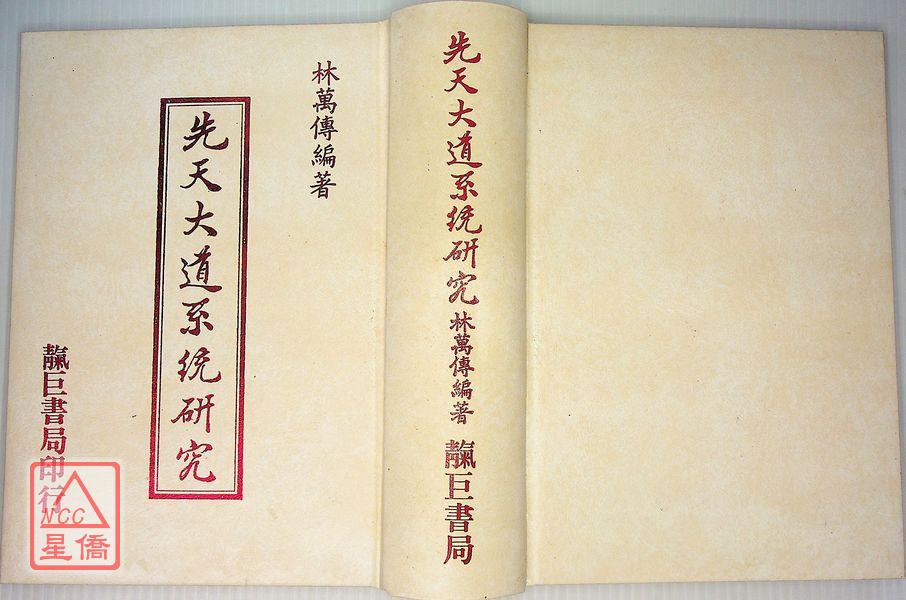 林萬傳編著
先天大道系統研究
靝巨書局印行
先天大道系統研究
林萬傳編著
靝巨書局
NCC
星僑